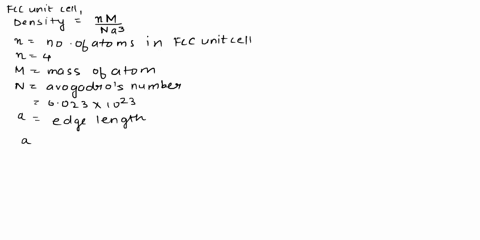 FCC unit cell,
Density = nM / Na3
n = no. of atoms in FCC unit cell
n = 4
M = mass of atom
N = avogodro's number
= 6.023 x 10 23
a = edge length
a